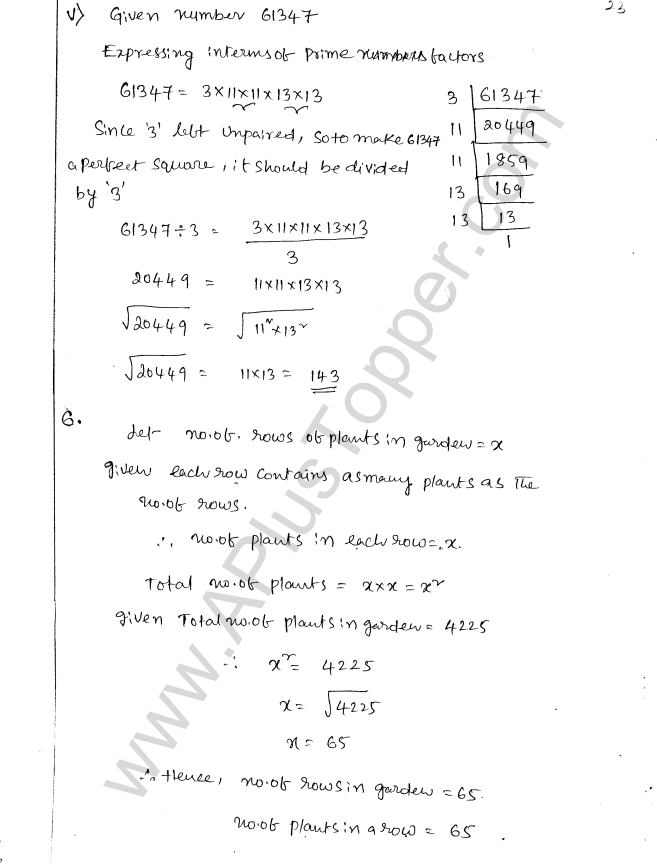 23
v) Given number 61347
Expressing interms of prime numbers factors
61347 = 3×11×11×13×13
Since '3' left unpaired, so to make 61347
a perfect square, it should be divided
by '3'
3 | 61347
11 | 20449
11 | 1859
13 | 169
13 | 13
1
61347÷3 = 3×11×11×13×13 / 3
20449 = 11×11×13×13
√20449 = √11²×13²
√20449 = 11×13 = 143
6.
let no.of. rows of plants in garden = x
given each row contains as many plants as the
no.of rows.
∴ no.of plants in each row = x.
Total no.of plants = x×x = x²
given Total no.of plants in garden = 4225
∴ x² = 4225
x = √4225
x = 65
∴ Hence, no.of rows in garden = 65.
no.of plants in a row = 65.
www.APlusTopper.com